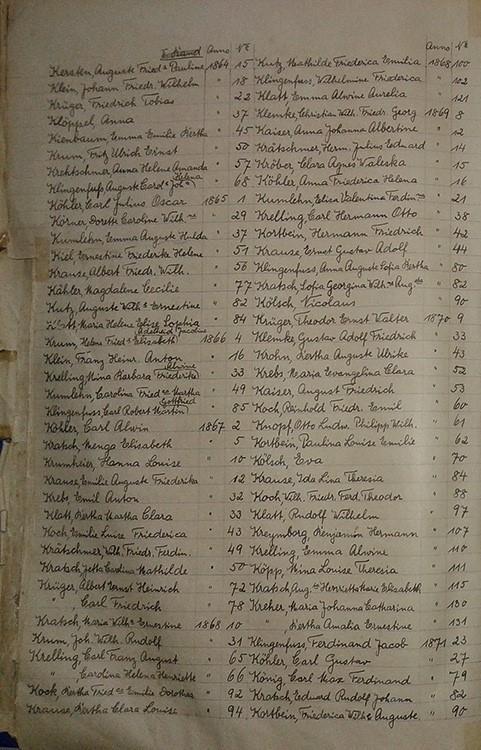 E. Stand Anno №
Kersten, Auguste Fried. Pauline 1864 15
Klein, Johann Friedr. Wilhelm " 18
Krüger Friedrich Tobias " 22
Klöppel, Anna " 37
Kienbaum, Emma Emilie Bertha " 45
Krum, Fritz Ulrich Ernst " 50
Krehtschmer, Anna Helene Amanda " 57
Klingenfuss Auguste Carol. Joh. Helena " 68
Köhler Carl Julius Oscar 1865 1
Körner, Dorett Caroline Wilh. " 29
Kumlehn, Emma Auguste Hulda " 37
Kiel Ernestine Friederike Helene " 51
Krause, Albert Friedr. Wilh. " 56
Kähler, Magdalene Cecilie " 77
Kutz, Auguste Wilh. Ernestine " 82
Maria Helena Elise Sophia " 84
Krum, Helena Fried. Elisabeth Adelheid Jacobine 1866 4
Klein, Franz Heinr. Anton " 16
Krelling, Nina Barbara Friederike " 33
Kumlehn, Carolina Fried. Martha " 49
Klingenfuss, Carl Robert Martin Gottfried " 85
Köhler, Carl Alwin 1867 2
Kratsch, Menga Elisabeth " 5
Krumheier, Hanna Louise " 10
Krause, Emilie Auguste Friederika " 12
Krebs, Emil Anton " 32
Klatt, Bertha Martha Clara " 33
Koch, Emilie Luise Friederica " 43
Krätschmer, Wilh. Friedr. Ferdin. " 49
Kratsch, Jetta Carolina Mathilde " 50
Krüger, Albat Ernst Heinrich " 72
" Carl Friedrich " 78
Kratsch, Maria Wilh. Ernestine 1868 10
Krum, Joh. Wilh. Rudolf " 31
Krelling, Carl Franz August " 65
" Carolina Helena Henriette " 66
Kock, Bertha Fried. Emilie Dorothea " 92
Krause, Bertha Clara Louise " 94
Anno №
Kutz, Mathilde Friederica Emilia 1868 100
Klingenfuss, Wilhelmine Friederica " 102
Klatt Emma Alwine Aurelia " 121
Klemke, Christian Wilh. Friedr. Georg 1869 8
Kaiser, Anna Johanna Albertine " 12
Krätschmer, Herm. Julius Eduard " 14
Kröber, Clara Agnes Valeska " 15
Köhler, Anna Friederica Helena " 16
Kumlehn, Elisa Valentine Ferdin. " 21
Krelling, Carl Hermann Otto " 38
Kortbein, Hermann Friedrich " 42
Krause Ernst Gustav Adolf " 44
Klingenfuss, Anna Auguste Sofia Bertha " 80
Kratsch, Sofia Georgina Wilh. Aug. " 82
Kölsch, Nicolaus " 90
Krüger, Theodor Ernst Walter 1870 9
Klemke Gustav Adolf Friedrich " 33
Krohn, Bertha Auguste Ulrike " 43
Krebs, Maria Evangelina Clara " 52
Kaiser, August Friedrich " 53
Koch, Reinhold Friedr. Emil " 60
Knopf, Otto Ludw. Philipp Wilh. " 61
Kortbein, Paulina Louise Emilie " 62
Kölsch, Eva " 70
Krause, Ida Lina Theresia " 84
Koch, Wilh. Friedr. Ferd. Theodor " 88
Klatt, Rudolf Wilhelm " 97
Kreymborg, Benjamin Hermann " 107
Krelling, Emma Alwine " 110
Köpp, Mina Louise Theresia " 111
Kratsch, Aug. Henriette Marie Elisabeth " 115
Kreher, Maria Johanna Catharina " 130
" Bertha Amalia Ernestine " 131
Klingenfuss, Ferdinand Jacob 1871 23
Köhler, Carl Gustav " 27
König Carl Max Ferdinand " 79
Kratsch, Eduard Rudolf Johann " 82
Kortbein, Friederica Wilh. Auguste " 90